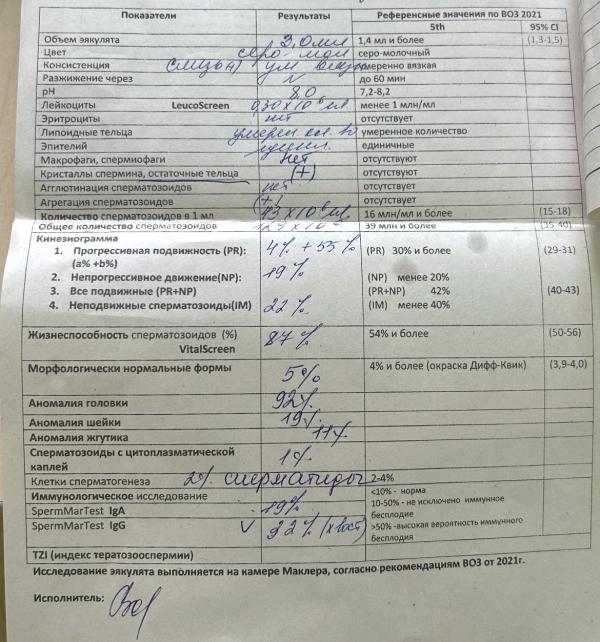 Показатели Результаты Референсные значения по ВОЗ 2021
5th 95% CI
Объем эякулята 3,0 мл 1,4 мл и более (1,3-1,5)
Цвет серо-мол серо-молочный
Консистенция ум вязк умеренно вязкая
Разжижение через N до 60 мин
pH 8,0 7,2-8,2
Лейкоциты LeucoScreen 0,30 x 10⁶ мл менее 1 млн/мл
Эритроциты нет отсутствует
Липоидные тельца умерен кол-во умеренное количество
Эпителий единичные
Макрофаги, спермиофаги нет отсутствуют
Кристаллы спермина, остаточные тельца (+) отсутствуют
Агглютинация сперматозоидов нет отсутствует
Агрегация сперматозоидов (+) отсутствует
Количество сперматозоидов в 1 мл 43 x 10⁶ мл 16 млн/мл и более (15-18)
Общее количество сперматозоидов 129 x 10⁶ 39 млн и более (35-40)
Кинезиограмма
1. Прогрессивная подвижность (PR): (a% +b%) 4% + 55% (PR) 30% и более (29-31)
2. Непрогрессивное движение(NP): 19% (NP) менее 20%
3. Все подвижные (PR+NP) (PR+NP) 42% (40-43)
4. Неподвижные сперматозоиды(IM) 22% (IM) менее 40%
Жизнеспособность сперматозоидов (%) 87% 54% и более (50-56)
VitalScreen
Морфологически нормальные формы 5% 4% и более (окраска Дифф-Квик) (3,9-4,0)
Аномалия головки 92%
Аномалия шейки 19%
Аномалия жгутика 11%
Сперматозоиды с цитоплазматической каплей 1%
Клетки сперматогенеза 2% сперматиды 2-4%
Иммунологическое исследование <10% - норма
SpermMarTest IgA 19% 10-50% - не исключено иммунное бесплодие
SpermMarTest IgG V 32% (хвост) >50% -высокая вероятность иммунного бесплодия
TZI (индекс тератозооспермии)
Исследование эякулята выполняется на камере Маклера, согласно рекомендациям ВОЗ от 2021г.
Исполнитель: